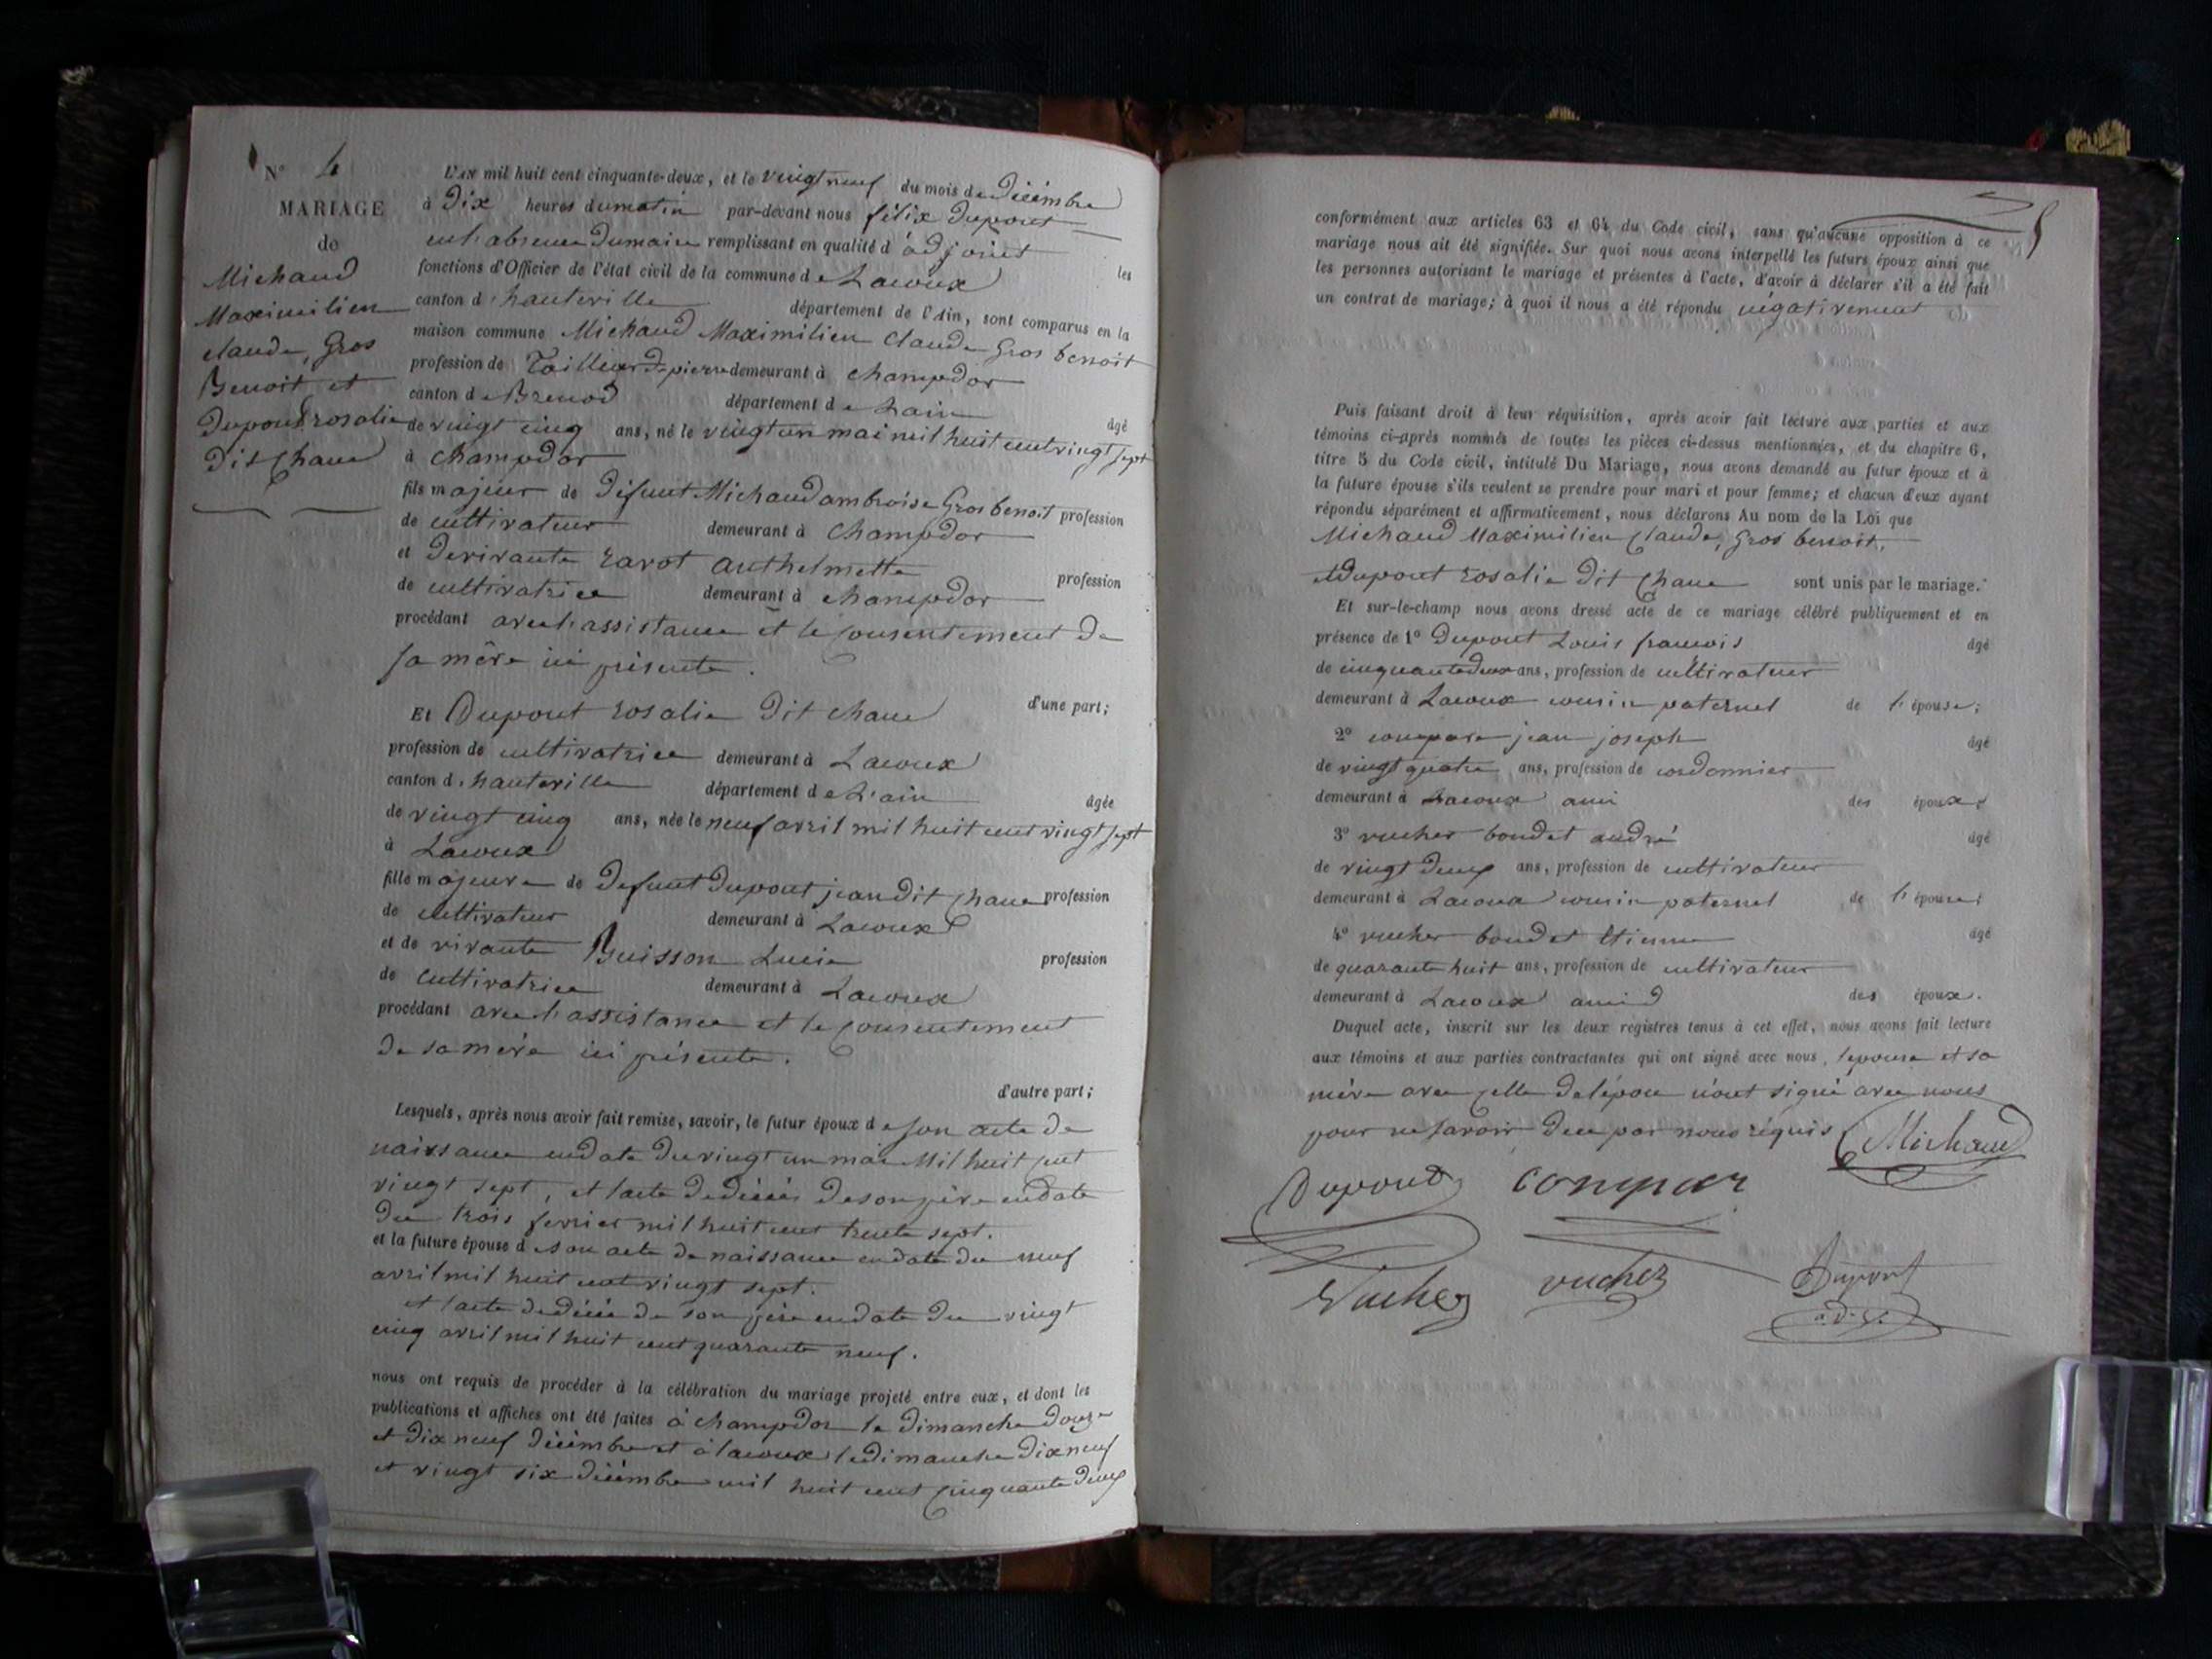 N° 4
MARIAGE
de
Michaud
Maximilien
claude, Gros
Benoit et
Dupont rosalie
Dit Chane
L'an mil huit cent cinquante-deux, et le vingt neuf du mois de Décémbre
à Dix heures du matin par-devant nous félix Dupont
en l'absence du maire remplissant en qualité d'adjoint les
fonctions d'Officier de l'état civil de la commune de Lacoux
canton d'hauteville département de l'Ain, sont comparus en la
maison commune Michaud Maximilien Claude Gros benoit
profession de Tailleur de pierre demeurant à champdor
canton de Brenod département de Lain âgé
de vingt cinq ans, né le vingt un mai mil huit cent vingt sept
à champdor
fils majeur de Défunt Michaud ambroise Gros benoit profession
de cultivateur demeurant à Champdor
et de vivante ravot anthelmette profession
de cultivatrice demeurant à champdor
procédant avec l'assistance et le consentement de
sa mère ici présente.
d'une part;
Et Dupont rosalie Dit chane
profession de cultivatrice demeurant à Lacoux
canton d'hauteville département de L'ain âgée
de vingt cinq ans, née le neuf avril mil huit cent vingt sept
à Lacoux
fille majeure de Défunt Dupont jean dit chane profession
de cultivateur demeurant à Lacoux
et de vivante Buisson Lucie profession
de cultivatrice demeurant à Lacoux
procédant avec l'assistance et le consentement
de sa mère ici présente.
d'autre part;
Lesquels, après nous avoir fait remise, savoir, le futur époux de son acte de
naissance en date du vingt un mai Mil huit cent
vingt sept, et l'acte de décès de son père en date
du trois fevrier mil huit cent trente sept.
et la future épouse de son acte de naissance en date du neuf
avril mil huit cent vingt sept.
et l'acte de décée de son père en date du vingt
cinq avril mil huit cent quarante neuf.
nous ont requis de procéder à la célébration du mariage projeté entre eux, et dont les
publications et affiches ont été faites à champdor le Dimanche douze
et Dix neuf Décémbre et à lacoux le Dimanche Dix neuf
et vingt six Décémbre mil huit cent cinquante deux
conformément aux articles 63 et 64 du Code civil, sans qu'aucune opposition à ce
mariage nous ait été signifiée. Sur quoi nous avons interpellé les futurs époux ainsi que
les personnes autorisant le mariage et présentes à l'acte, d'avoir à déclarer s'il a été fait
un contrat de mariage; à quoi il nous a été répondu négativement
Puis faisant droit à leur réquisition, après avoir fait lecture aux parties et aux
témoins ci-après nommés de toutes les pièces ci-dessus mentionnées, et du chapitre 6,
titre 5 du Code civil, intitulé Du Mariage, nous avons demandé au futur époux et à
la future épouse s'ils veulent se prendre pour mari et pour femme; et chacun d'eux ayant
répondu séparément et affirmativement, nous déclarons Au nom de la Loi que
Michaud Maximilien Claude, Gros benoit,
et Dupont rosalie Dit Chane sont unis par le mariage.
Et sur-le-champ nous avons dressé acte de ce mariage célébré publiquement et en
présence de 1° Dupont Louis francois âgé
de cinquante deux ans, profession de cultivateur
demeurant à Lacoux cousin paternel de l'épouse;
2° compare jean joseph âgé
de vingt quatre ans, profession de cordonnier
demeurant à Lacoux ami des époux;
3° vucher boudet andré âgé
de vingt deux ans, profession de cultivateur
demeurant à Lacoux cousin paternel de l'épouse;
4° vucher boudet Etienne âgé
de quarante huit ans, profession de cultivateur
demeurant à Lacoux ami des époux.
Duquel acte, inscrit sur les deux registres tenus à cet effet, nous avons fait lecture
aux témoins et aux parties contractantes qui ont signé avec nous, l'epouse et sa
mère avec celle de l'époux n'ont signé avec nous
pour ne savoir de ce par nous réquis
Michaud
Dupond compar
Vucher vucher Dupont
adj.